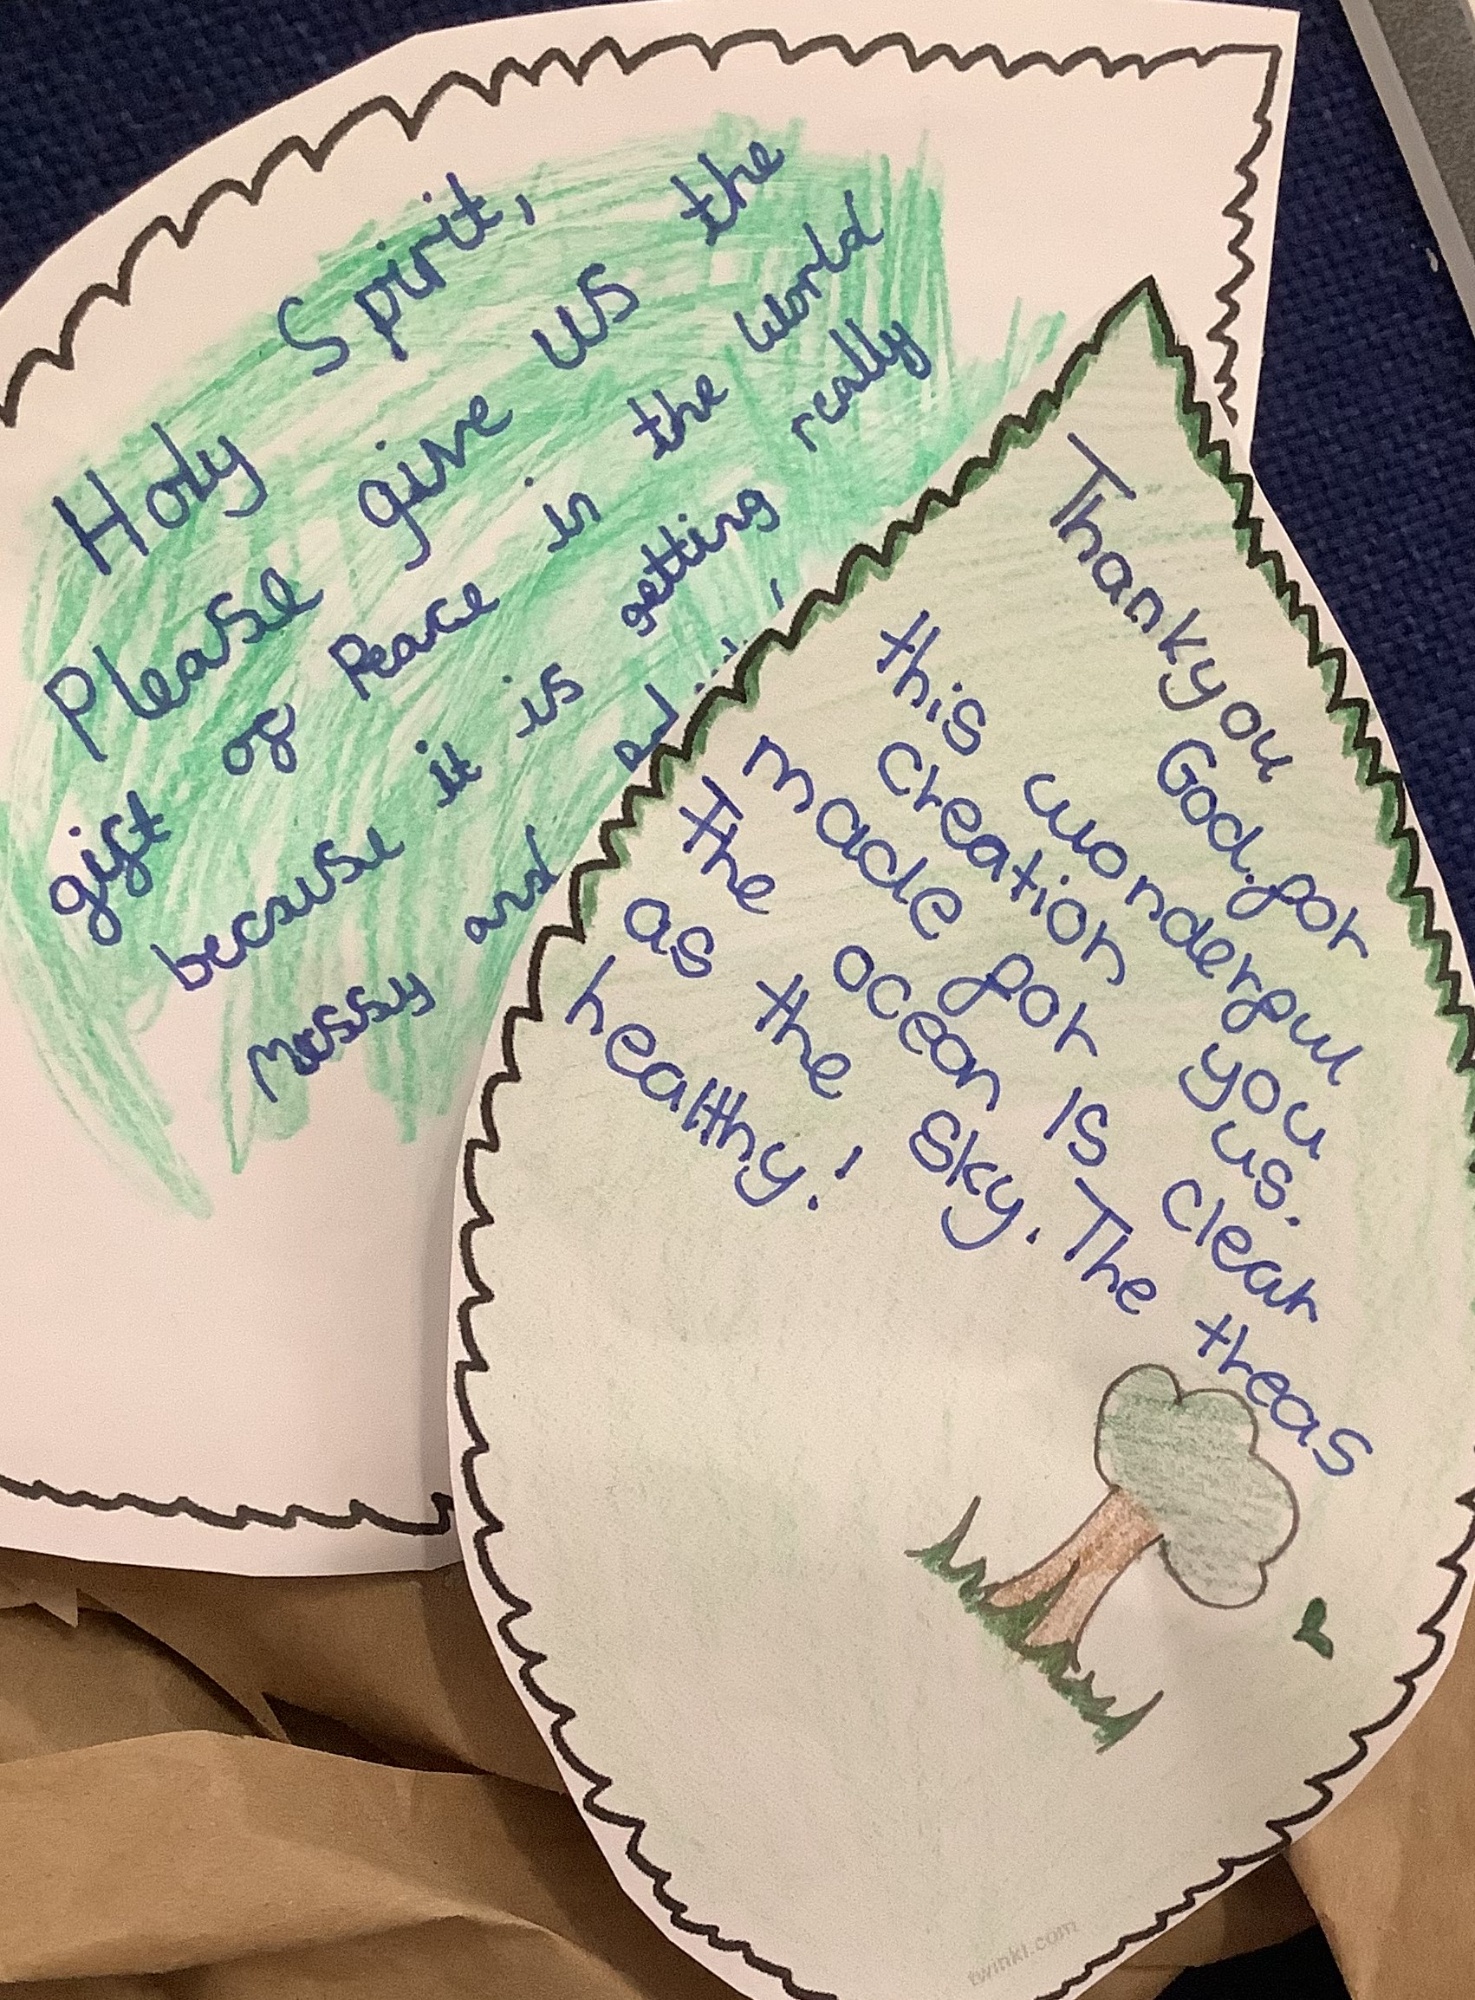 Holy Spirit,
Please give us the
gift of Peace in the World
because it is getting really
Messy and
Thankyou God. for
this wonderful
creation you
made for us.
The ocean is clear
as the sky. The treas
healthy!
twinkl.com